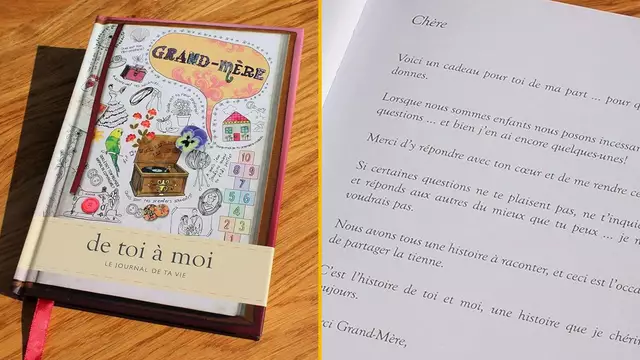 GRAND-MÈRE
10
8 9
7
5 6
4
2 3
1
de toi à moi
LE JOURNAL DE TA VIE
Chère
Voici un cadeau pour toi de ma part ... pour
donnes.
Lorsque nous sommes enfants nous posons
questions ... et bien j'en ai encore quelques-unes!
Merci d'y répondre avec ton cœur et de me rendre
Si certaines questions ne te plaisent pas, ne
et réponds aux autres du mieux que tu peux ... je
voudrais pas.
Nous avons tous une histoire à raconter, et ceci est
de partager la tienne.
C'est l'histoire de toi et moi, une histoire que je
Grand-Mère,